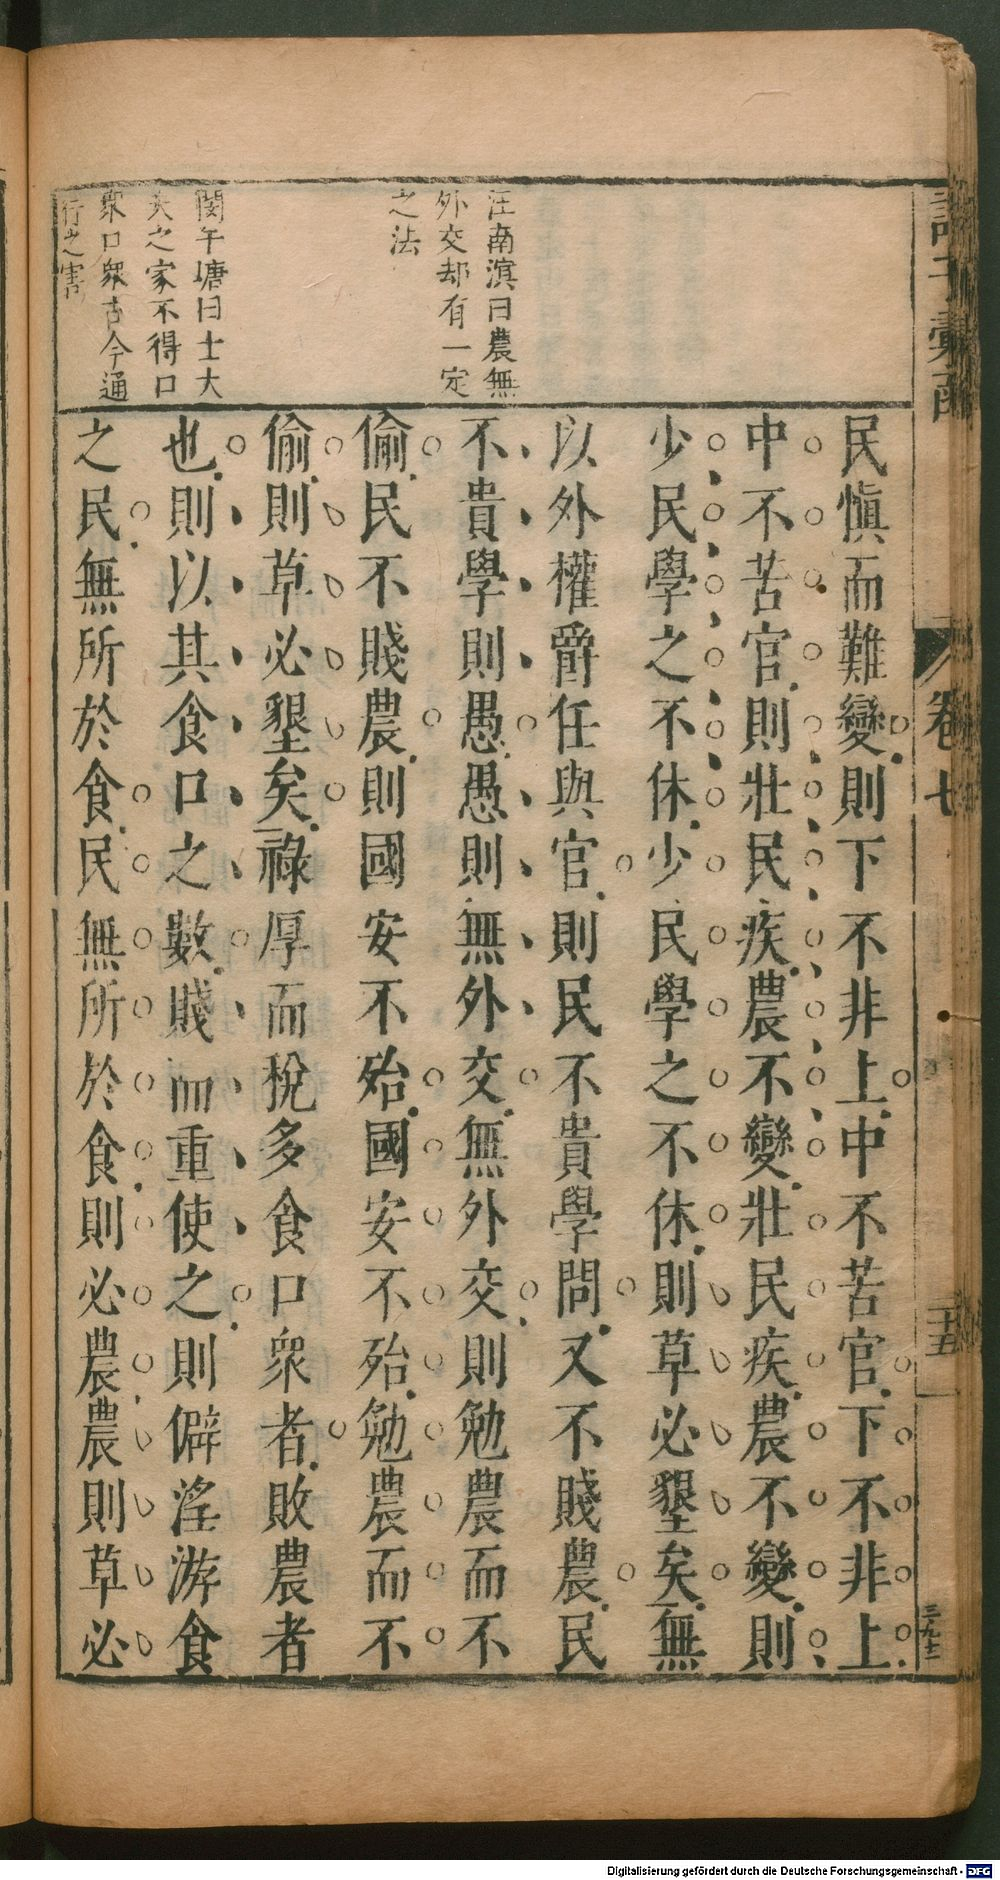 汪南溟曰農無
外交却有一定
之法
閔午塘曰士大
夫之家不得口
衆口衆古今通
行之害
民愼而難變則下不非上中不苦官下不非上
中不苦官則壯民疾農不變壯民疾農不變則
少民學之不休少民學之不休則草必墾矣無
以外權爵任與官則民不貴學問又不賤農民
不貴學則愚愚則無外交無外交則勉農而不
偷民不賤農則國安不殆國安不殆勉農而不
偷則草必墾矣祿厚而稅多食口衆者敗農者
也則以其食口之數賤而重使之則僻淫游食
之民無所於食民無所於食則必農農則草必
卷七
十五
Digitalisierung gefördert durch die Deutsche Forschungsgemeinschaft - DFG